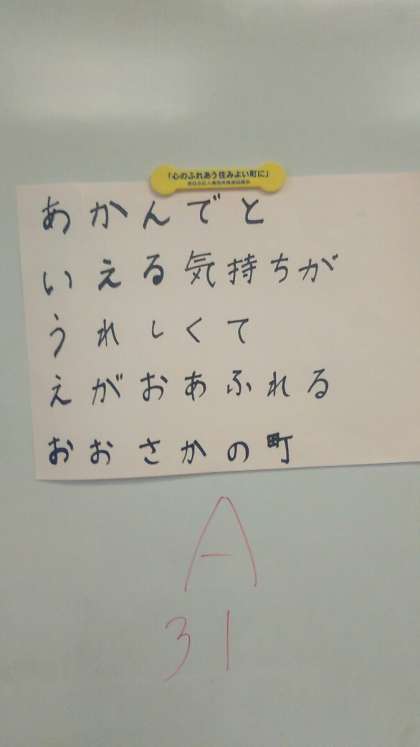 「心のふれあう住みよい町に」
あかんでと
いえる気持ちが
うれしくて
えがおあふれる
おおさかの町
A
31